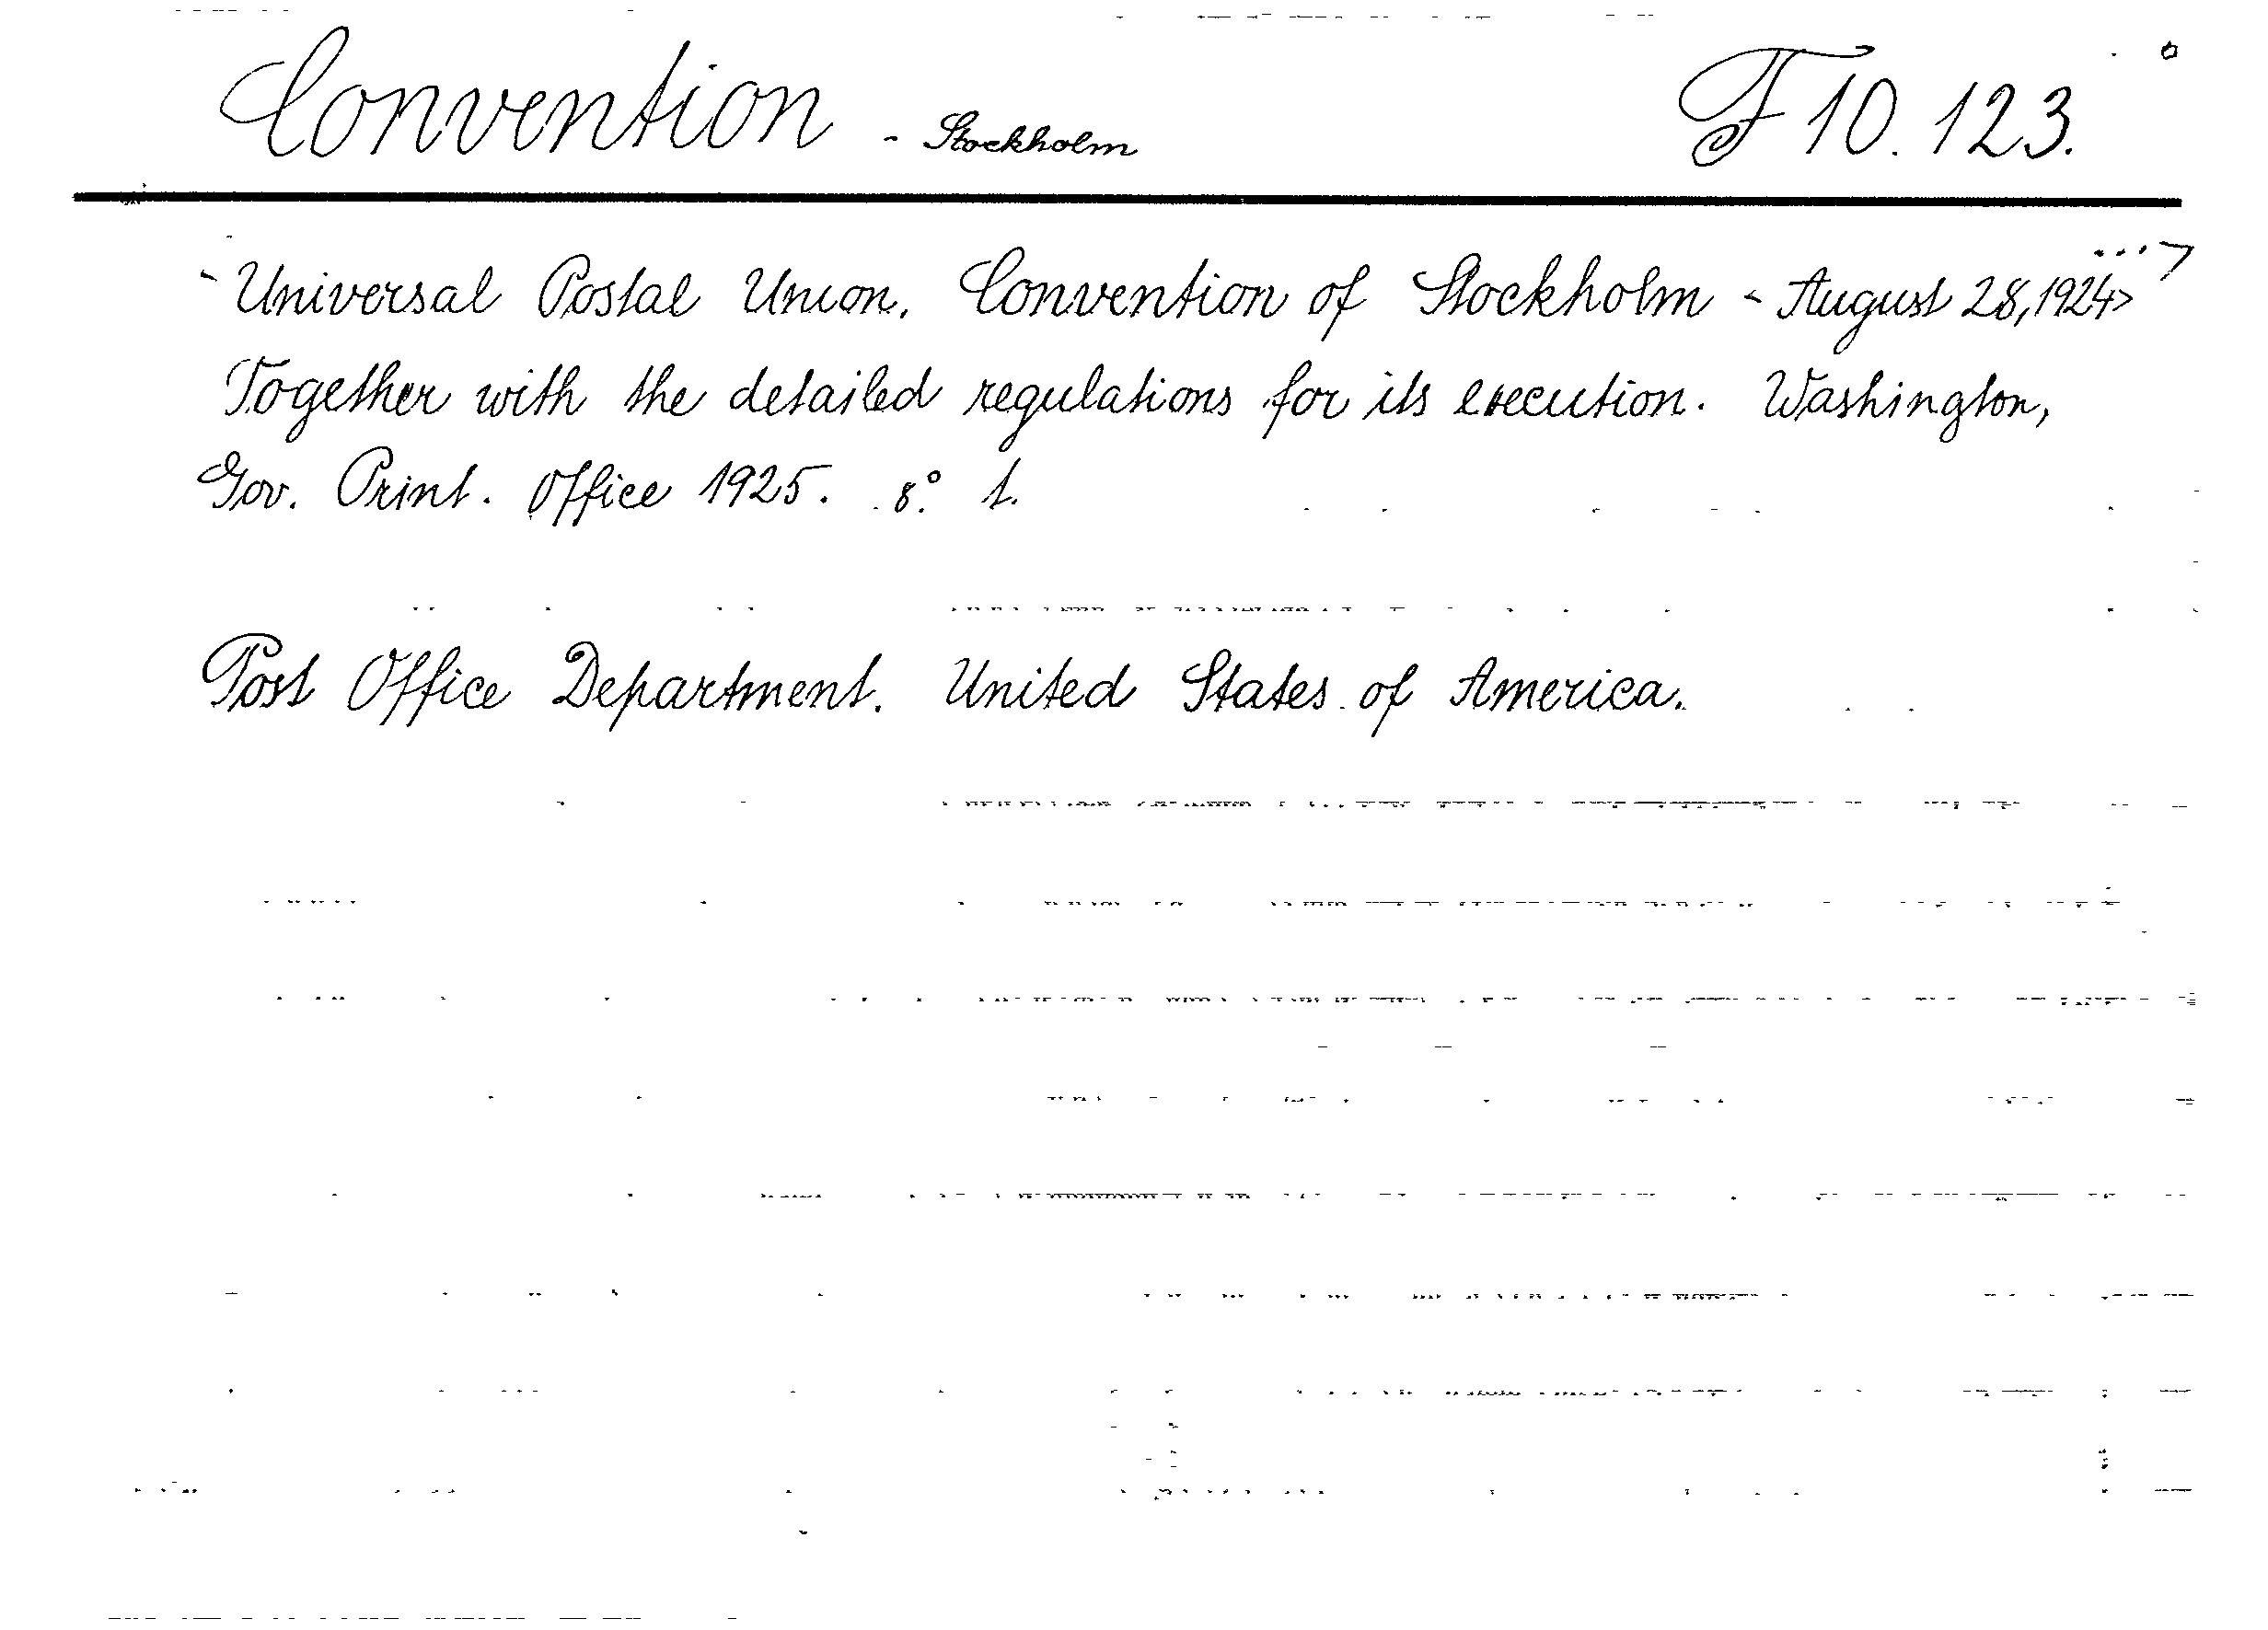 Convention - Stockholm F 10. 123.
- Universal Postal Union. Convention of Stockholm < August 28, 1924>
Together with the detailed regulations for its execution. Washington,
Gov. Print. Office 1925. 8° 1.
Post Office Department. United States of America.